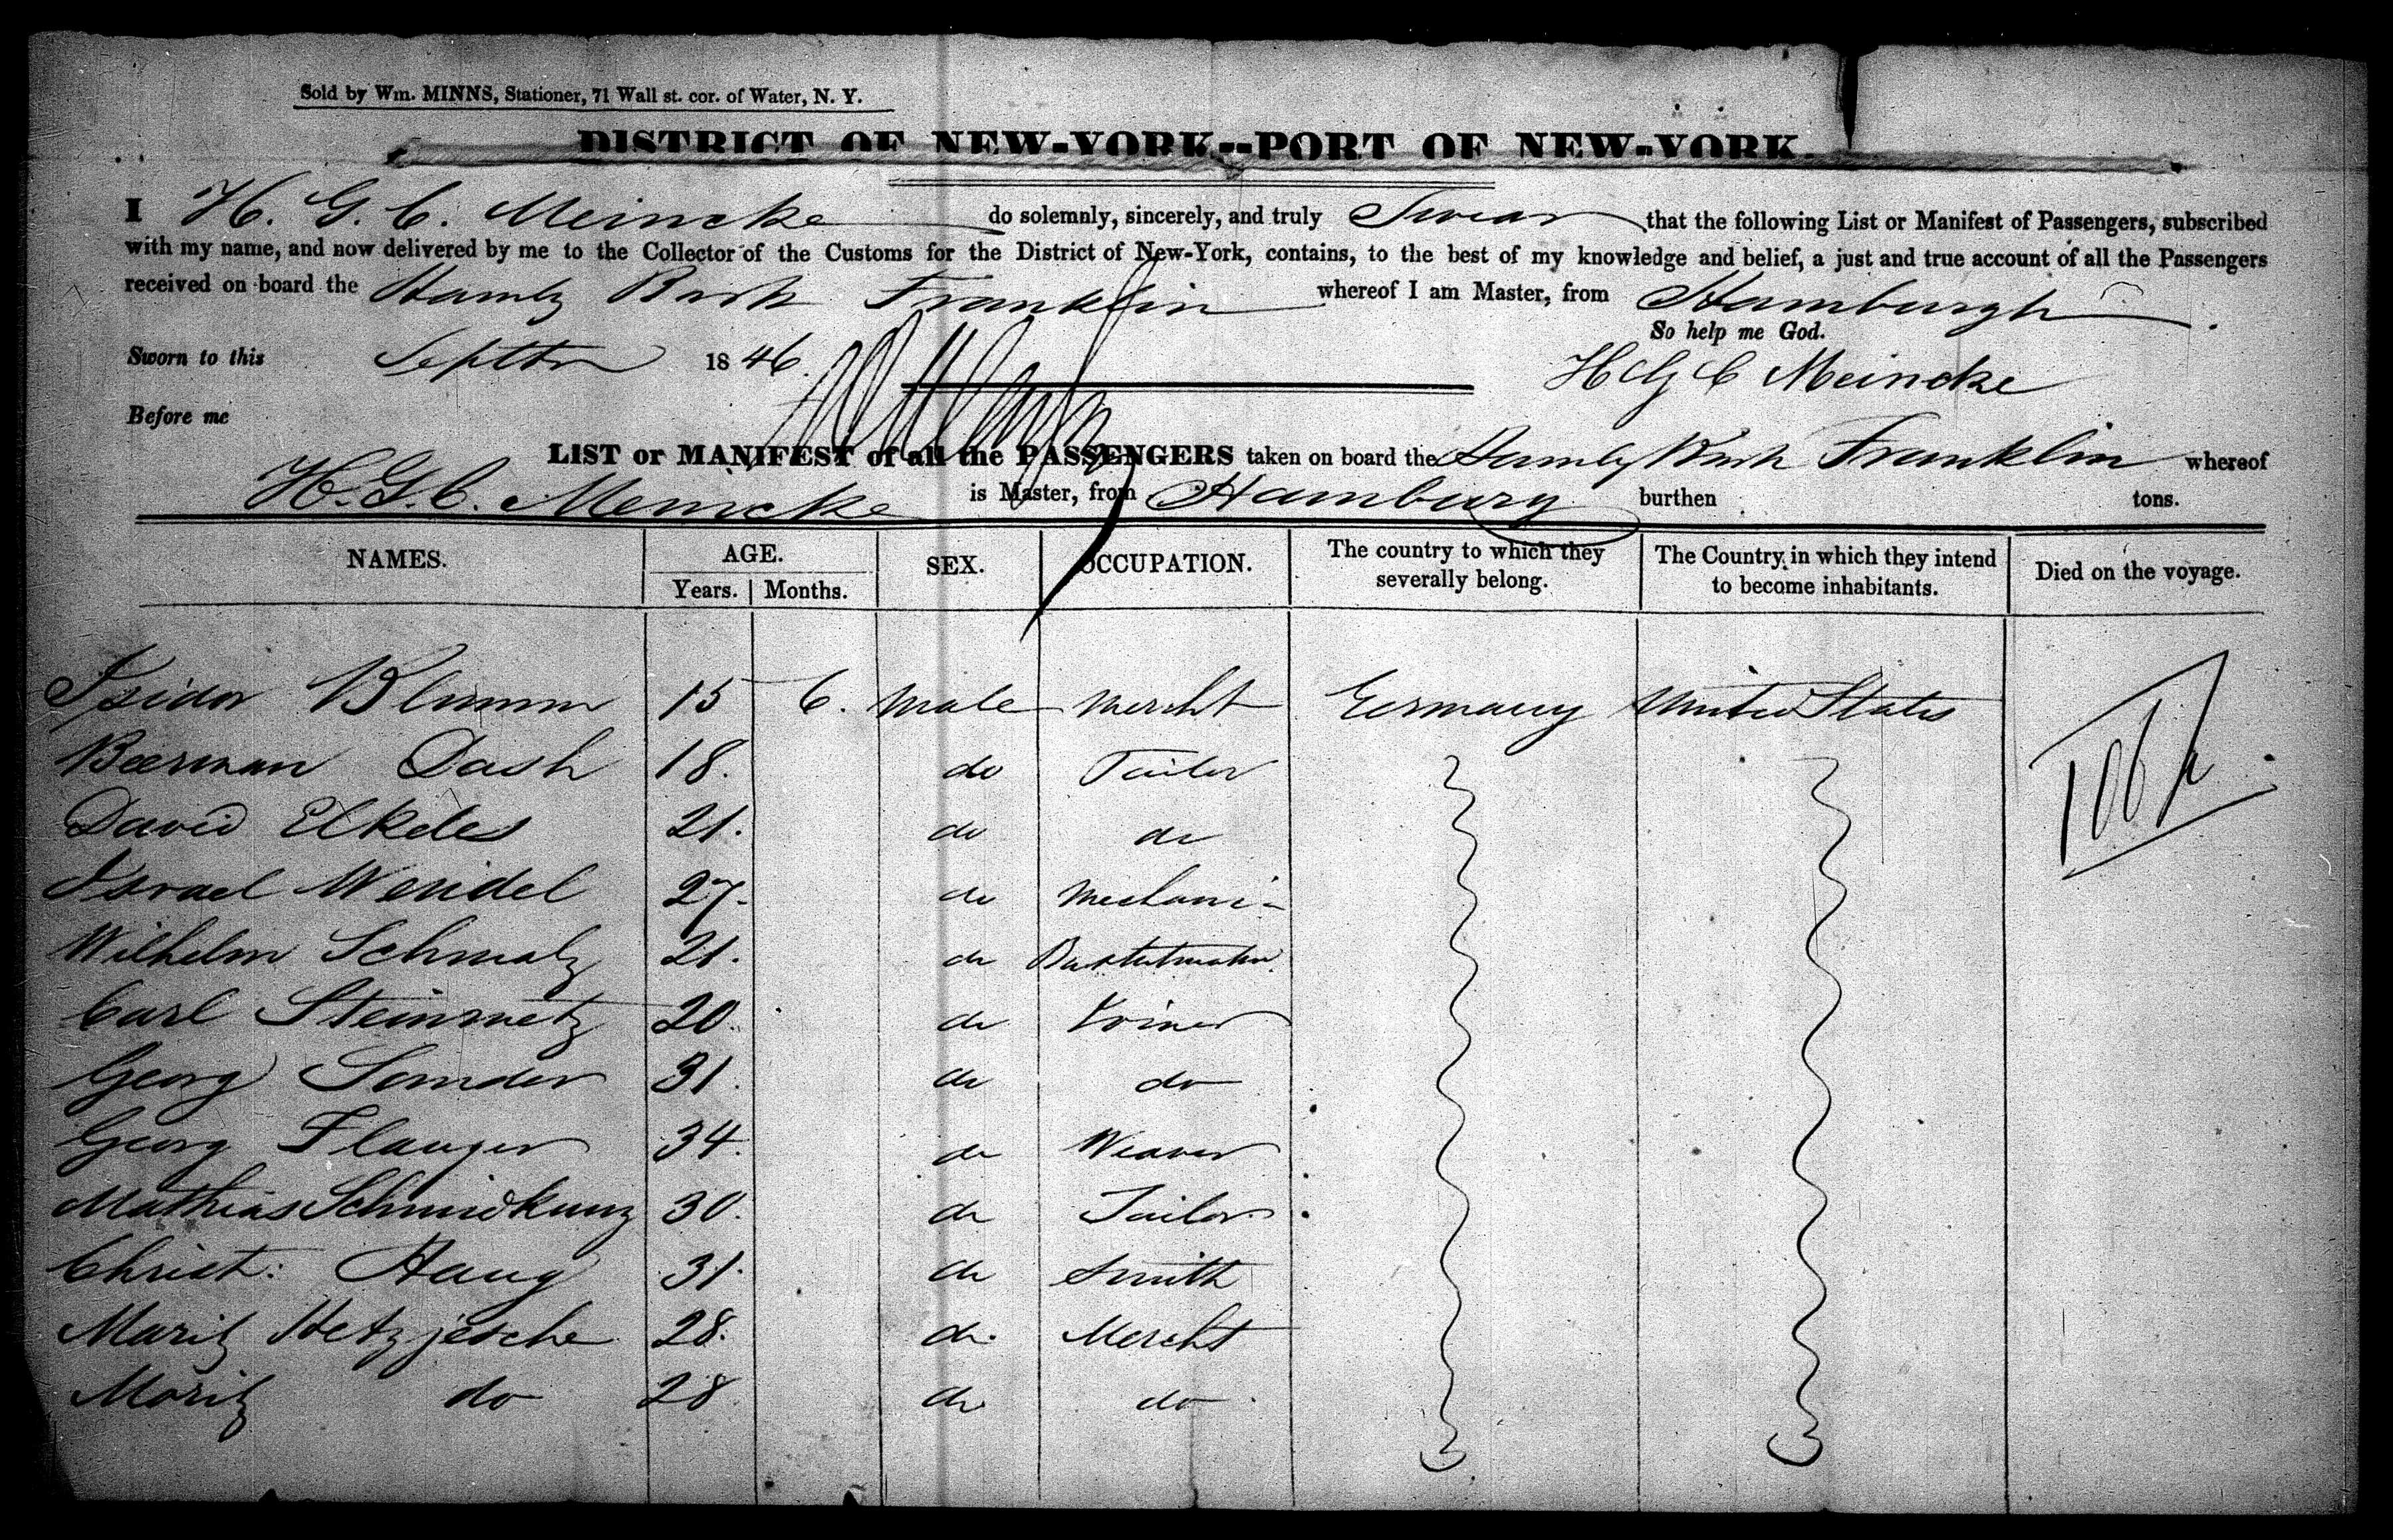 Sold by Wm. MINNS, Stationer, 71 Wall st. cor. of Water, N. Y.
DISTRICT OF NEW-YORK--PORT OF NEW-YORK.
I H. G. C. Meincke do solemnly, sincerely, and truly Swear that the following List or Manifest of Passengers, subscribed
with my name, and now delivered by me to the Collector of the Customs for the District of New-York, contains, to the best of my knowledge and belief, a just and true account of all the Passengers
received on board the Hambg Bark Franklin whereof I am Master, from Hamburgh
So help me God.
Sworn to this Septbr 1846. H G C Meincke
Before me
LIST or MANIFEST of all the PASSENGERS taken on board the Hambg Bark Franklin whereof
H. G. C. Meincke is Master, from Hamburg burthen tons.
NAMES. AGE. Years. Months. SEX. OCCUPATION. The country to which they severally belong. The Country in which they intend to become inhabitants. Died on the voyage.
Isidor Blumm 15 6. Male Mercht Germany United States
Beerman Dash 18. do Tailor
David Elkeles 21. do do
Israel Wendel 27. do Mechani-
Wilhelm Schmalz 21. do
Carl Steinmetz 20. do
Georg Sander 31. do do
Georg Flauger 34. do Weaver
Mathias Schmidkunz 30. do Tailor
Christ: Haug 31. do Smith
Maritz Hetzjesche 28. do. Mercht
Moritz do 28 do. do